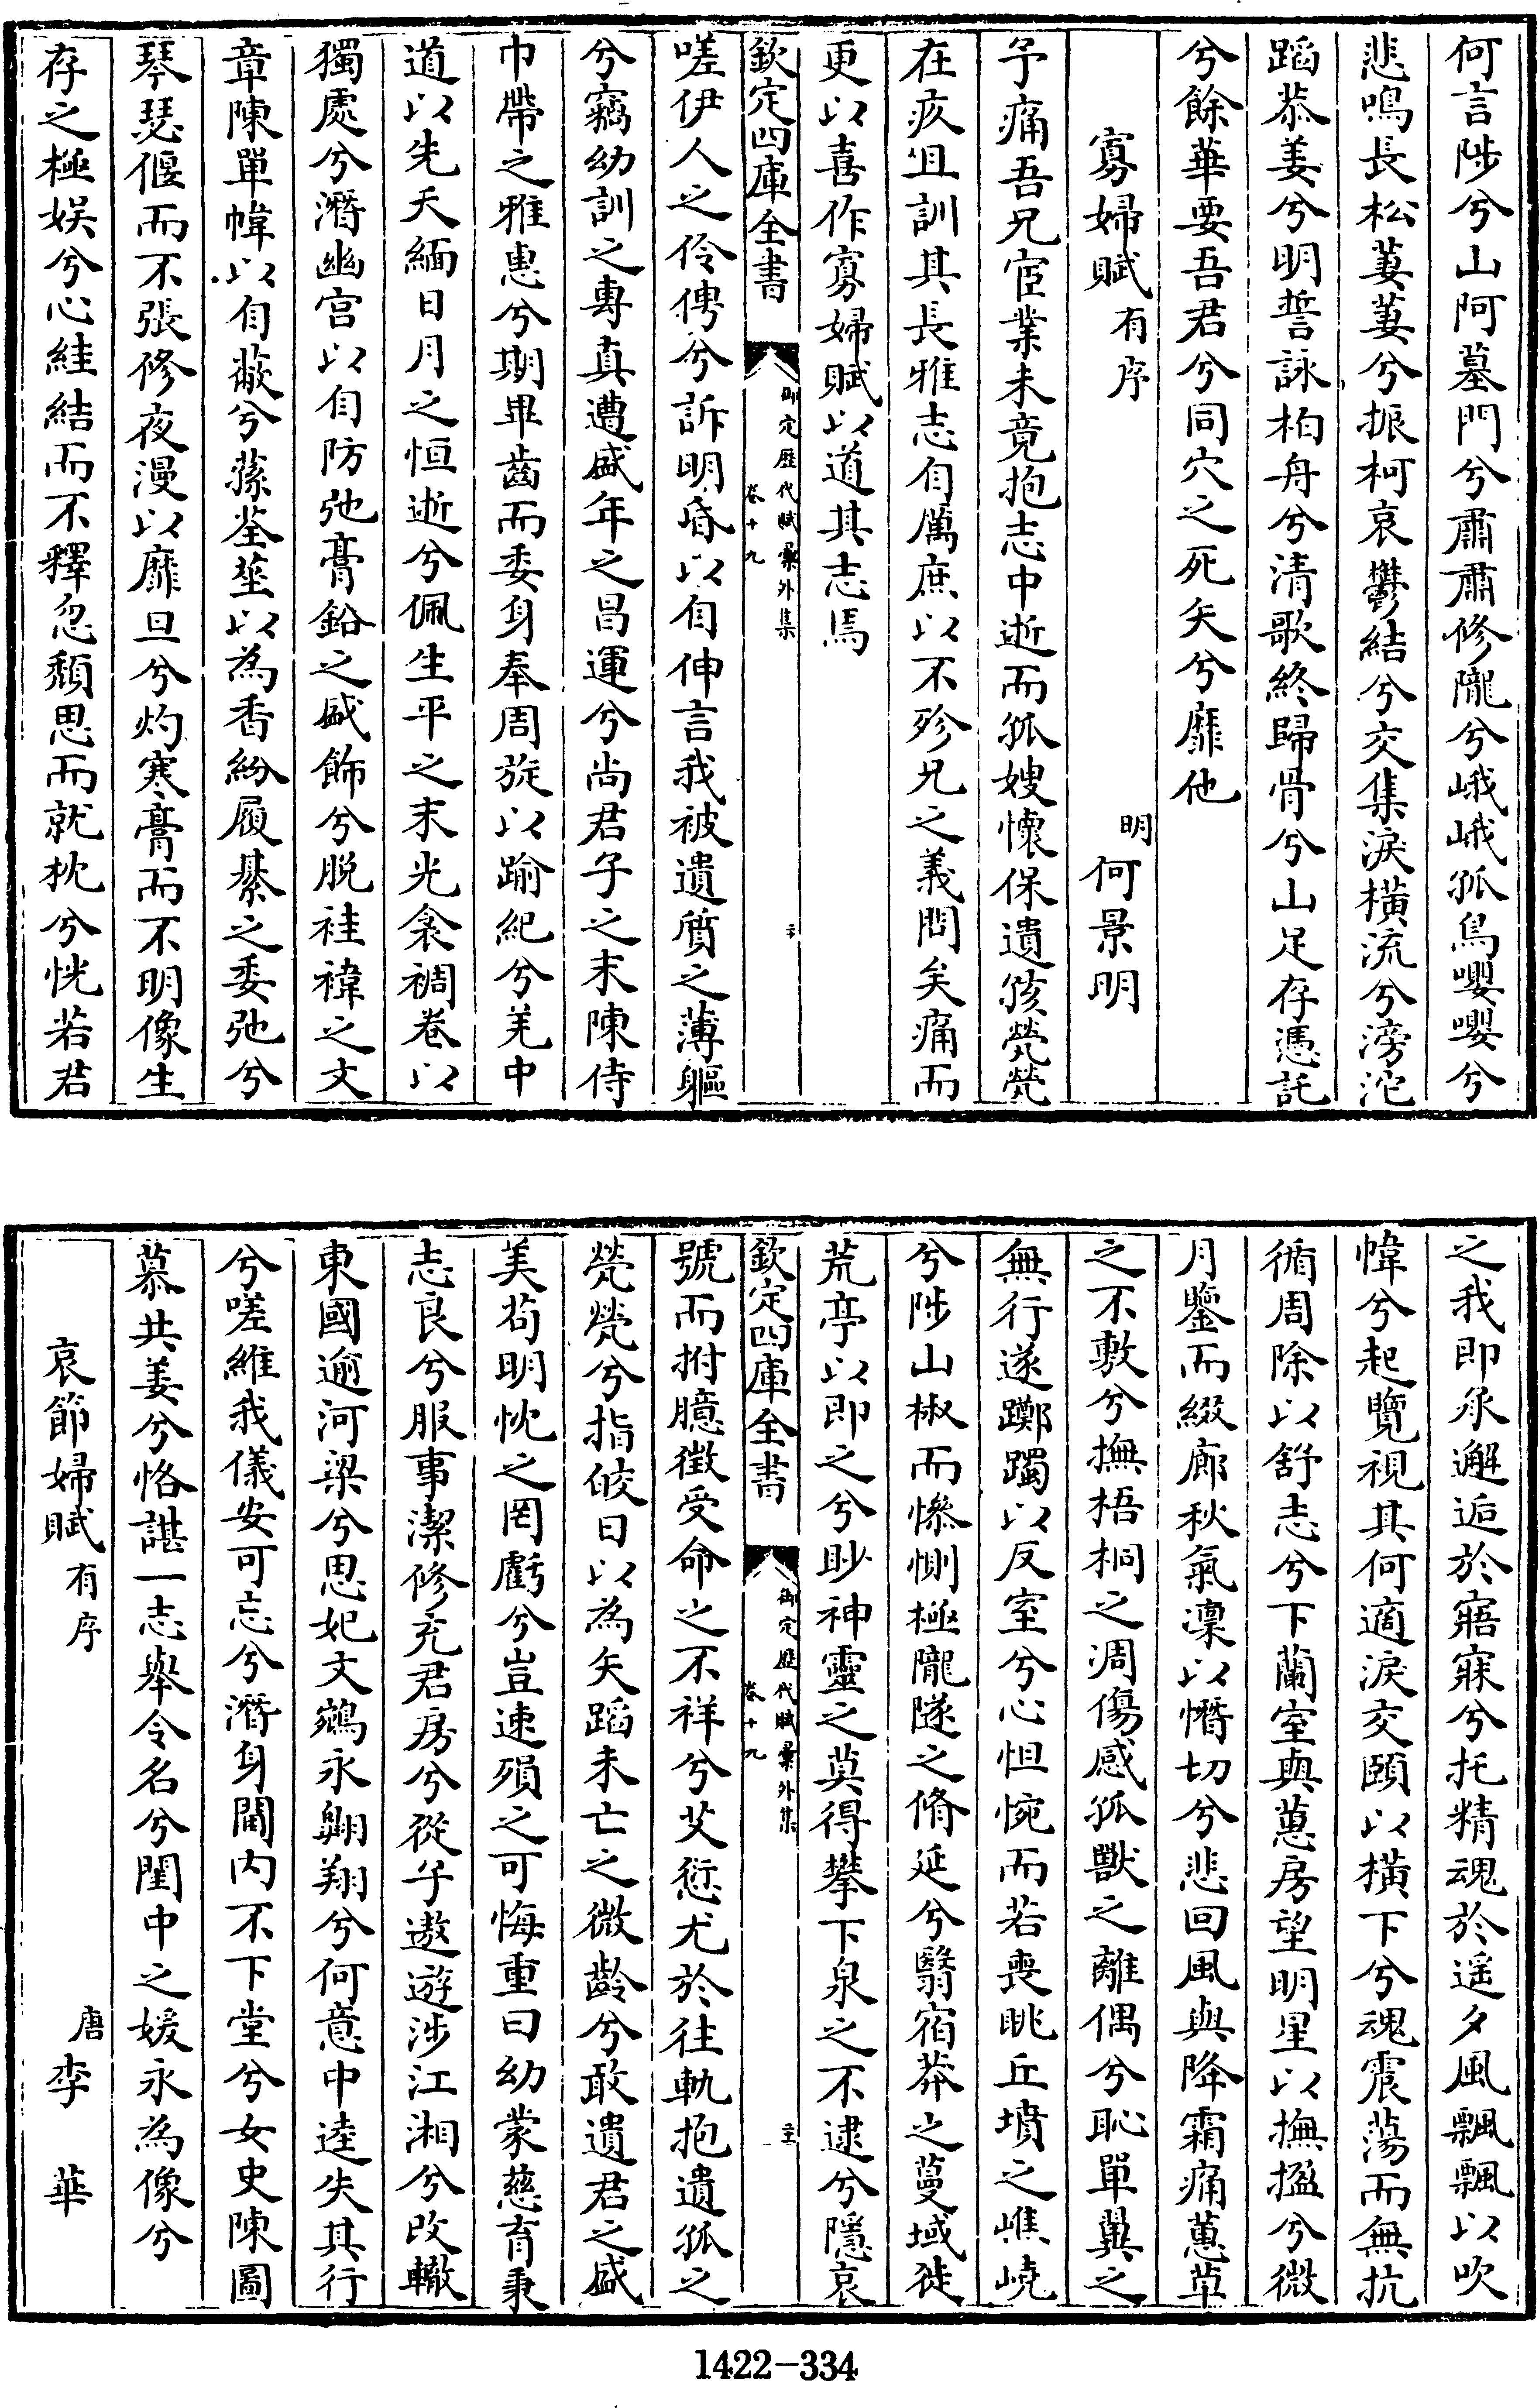 何言陟兮山阿墓門兮肅肅修隴兮峨峨孤鳥嚶嚶兮
悲鳴長松萋萋兮振柯哀鬱結兮交集淚橫流兮滂沱
蹈恭姜兮明誓詠柏舟兮清歌終歸骨兮山足存憑託
兮餘華要吾君兮同穴之死矢兮靡他
寡婦賦有序 明何景明
予痛吾兄宦業未竟抱志中逝而孤嫂懷保遺孩煢煢
在疚且訓其長雅志自厲庶以不殄兄之義問矣痛而
更以喜作寡婦賦以道其志焉
欽定四庫全書 御定歷代賦彙外集 卷十九
嗟伊人之伶俜兮訴明昏以自伸言我被遺質之薄軀
兮竊幼訓之專真遭盛年之昌運兮尚君子之末陳侍
巾帶之雅惠兮期畢齒而委身奉周旋以踰紀兮羌中
道以先夭緬日月之恒逝兮佩生平之末光衾裯卷以
獨處兮潛幽宮以自防弛膏鉛之盛飾兮脱袿褘之文
章陳單幃以自蔽兮蓀荃茝以為香紛履綦之委弛兮
琴瑟偃而不張修夜漫以靡旦兮灼寒膏而不明像生
存之極娛兮心絓結而不釋忽頹思而就枕兮恍若君
之我即承邂逅於寤寐兮托精魂於遥夕風飄飄以吹
幃兮起覽視其何適淚交頤以橫下兮魂震蕩而無抗
循周除以舒志兮下蘭室與蕙房望明星以撫揾兮微
月鑒而綴廊秋氣凜以憯切兮悲回風與降霜痛蕙草
之不敷兮撫梧桐之凋傷感孤獸之離偶兮恥單異之
無行遂躑躅以反室兮心怛惋而若喪眺丘墳之嶕嶢
兮陟山椒而慘惻極隴隧之脩延兮翳宿莽之蔓域徙
荒亭以即之兮眇神靈之莫得攀下泉之不逮兮隱哀
欽定四庫全書 御定歷代賦彙外集 卷十九
號而拊臆徵受命之不祥兮艾愆尤於往軌抱遺孤之
煢煢兮指皎日以為矢蹈未亡之微齡兮敢遺君之盛
美苟明忱之罔虧兮豈速殞之可悔重曰幼蒙慈育秉
志良兮服事潔修充君房兮從子遨遊涉江湘兮改轍
東國逾河梁兮思妃文鵷永翱翔兮何意中逵失其行
兮嗟維我儀安可忘兮潛身閫内不下堂兮女史陳圖
慕共姜兮恪諶一志舉令名兮閨中之媛永為像兮
哀節婦賦有序 唐李華
1422—334